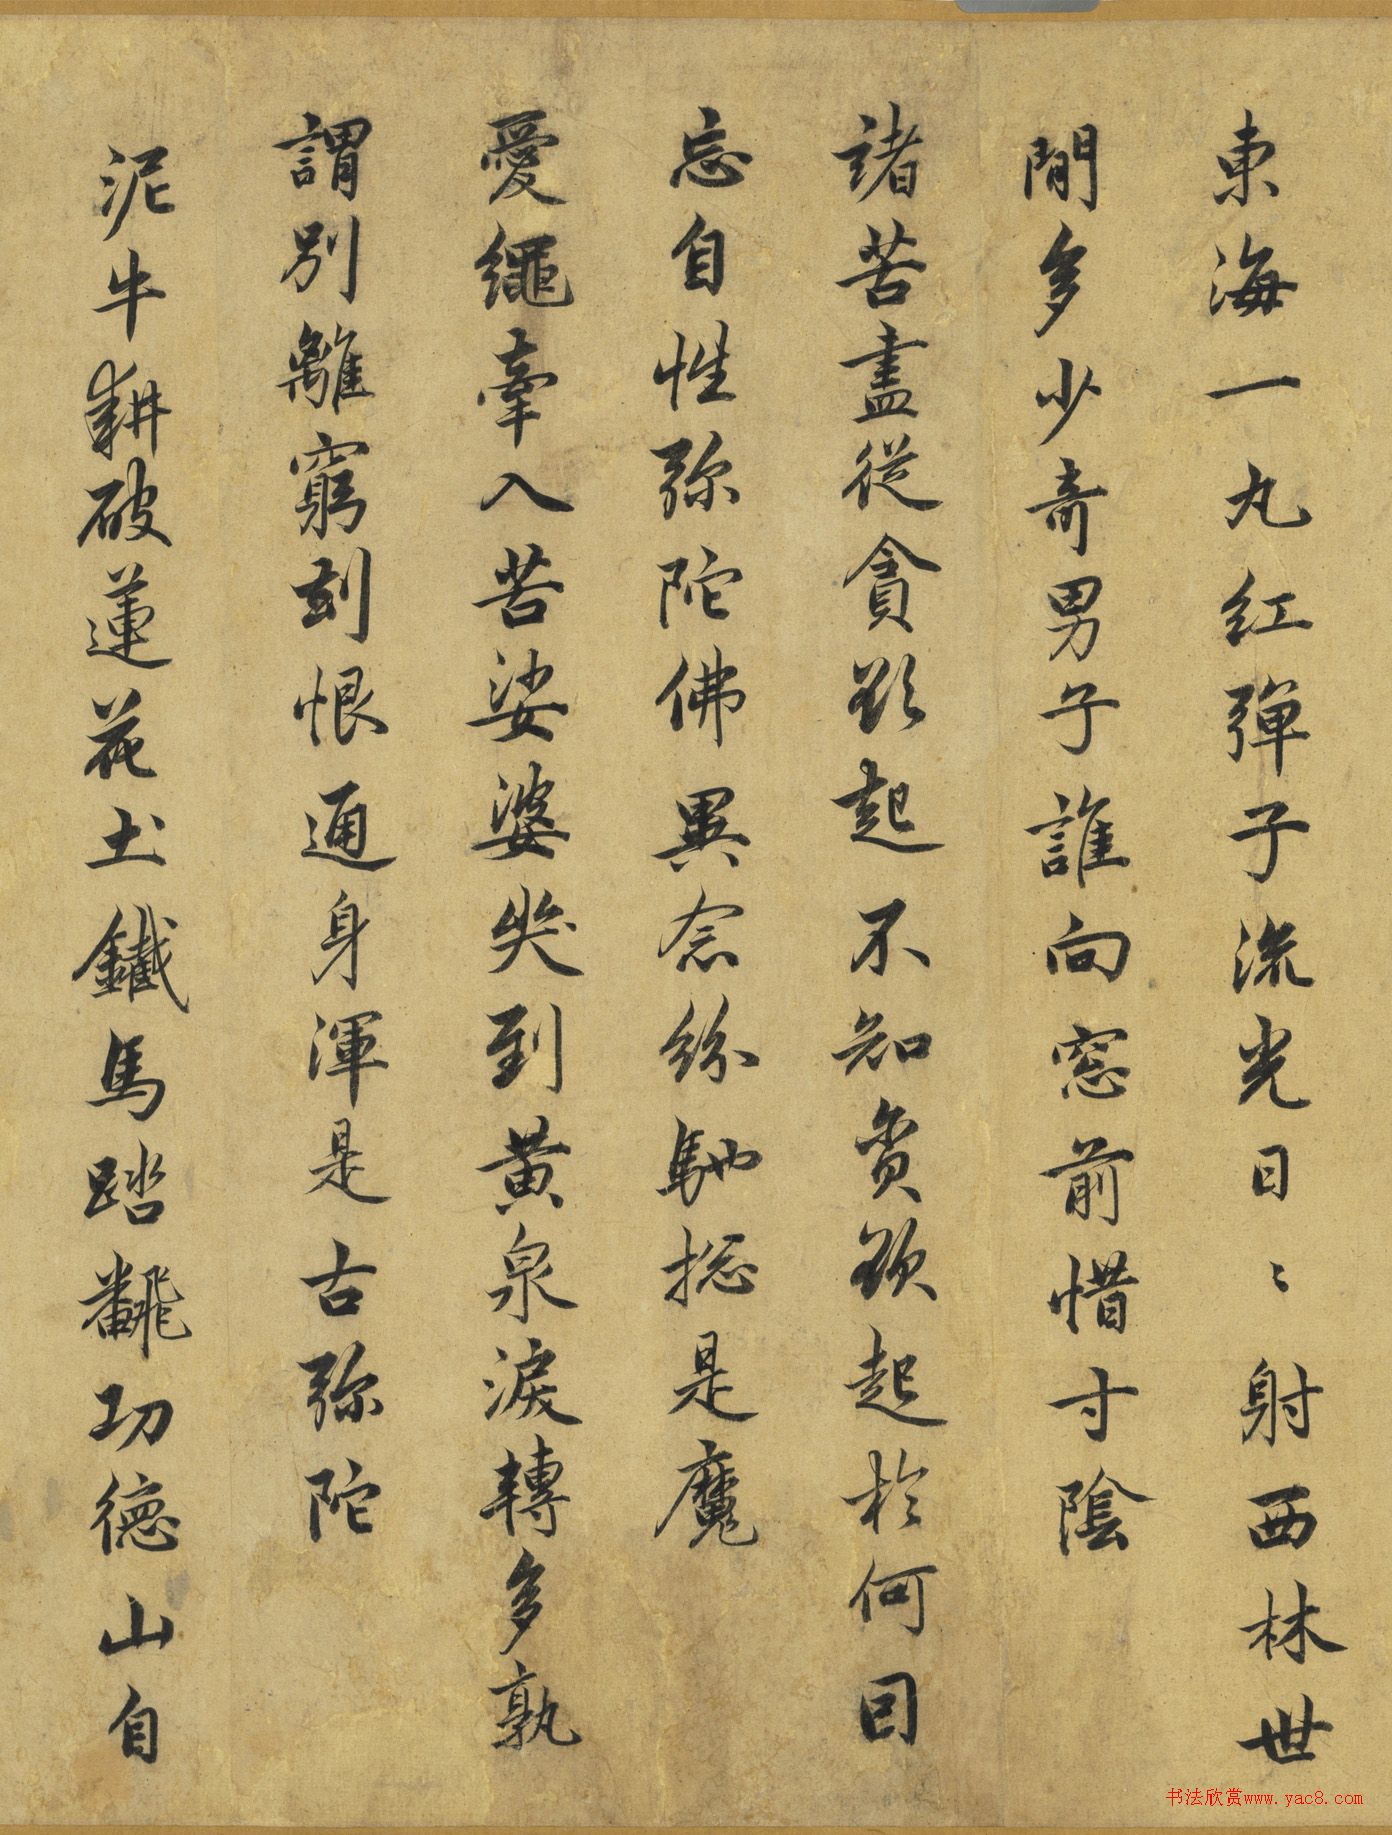 東海一丸紅彈子流光日〻射西林世
間多少奇男子誰向窓前惜寸陰
諸苦盡從貪欲起不知貪欲起於何因
忘自性弥陀佛異念紛馳揔是魔
愛繩牽入苦娑婆哭到黃泉淚轉多孰
謂別離窮劫恨通身渾是古弥陀
泥牛耕破蓮花土鐵馬踏飜功德山自
书法欣赏www.yac8.com